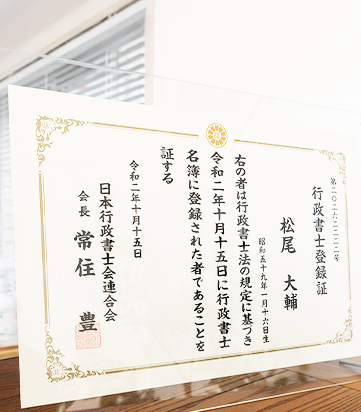 行政書士登録証
松尾 大輔
昭和五十九年一月十六日生
右の者は行政書士法の規定に基づき
令和二年十月十五日に行政書士
名簿に登録された者であることを
証する
令和二年十月十五日
日本行政書士会連合会
会長 常住 豊